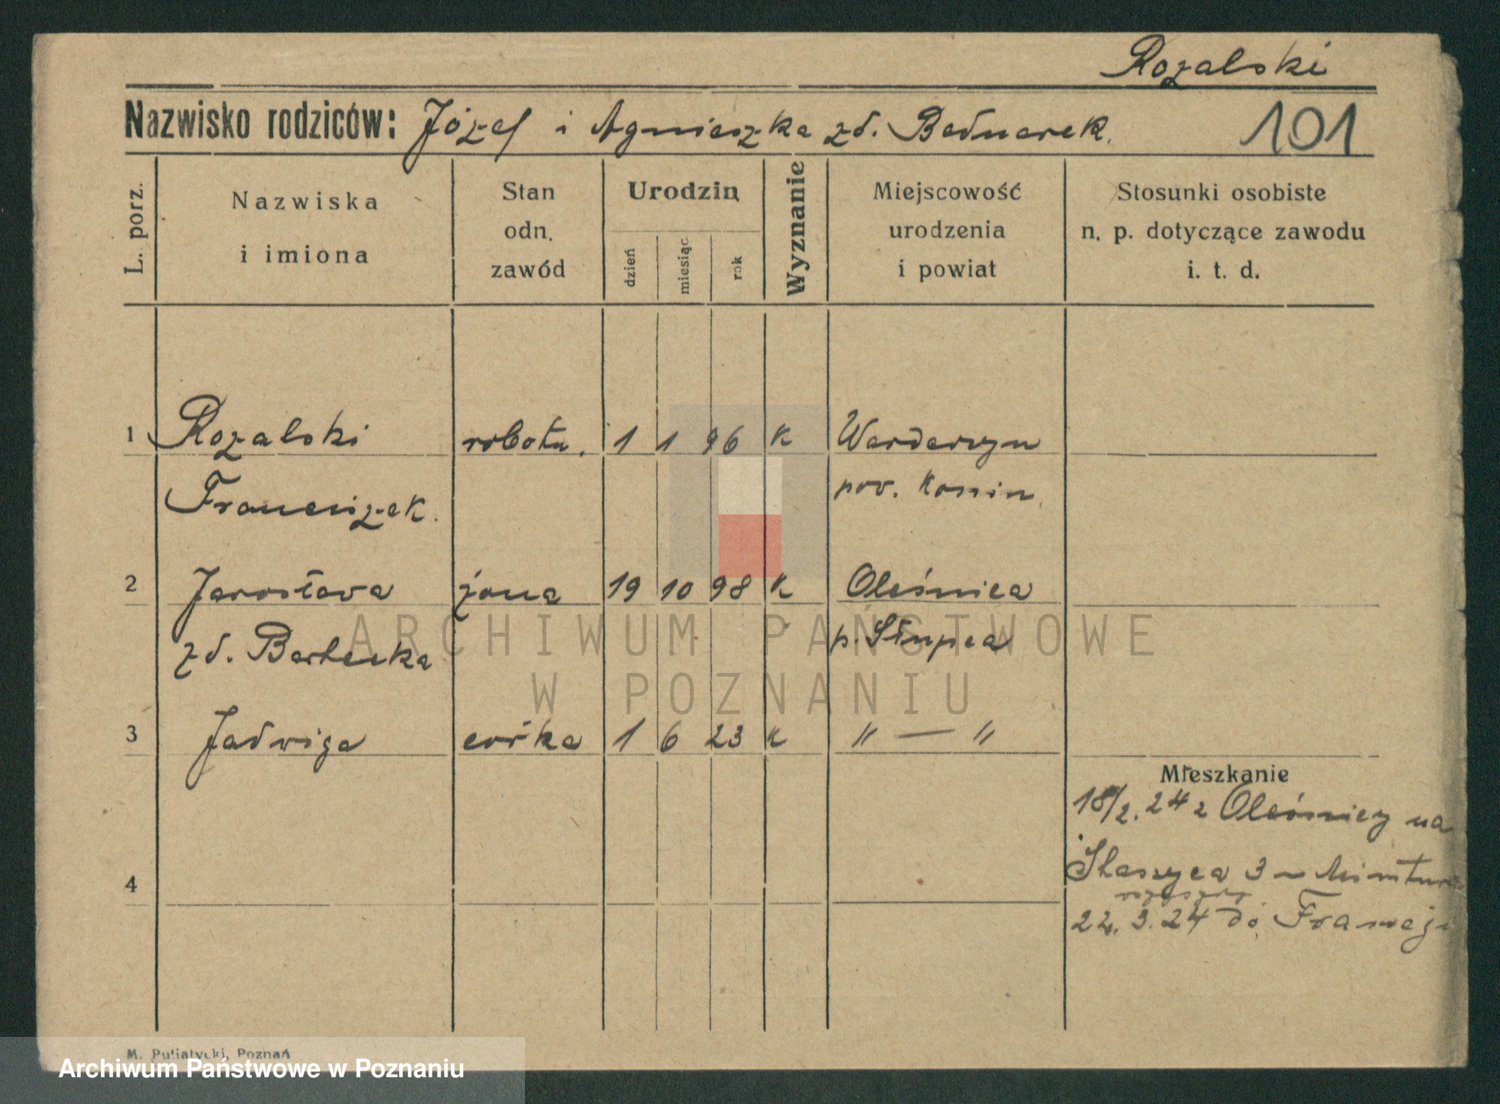 Rozalski
Nazwisko rodziców: Józef i Agnieszka zd. Bednarek.
101
L. porz.
Nazwiska
i imiona
Stan
odn.
zawód
Urodzin
dzień
miesiąc
rok
Wyznanie
Miejscowość
urodzenia
i powiat
Stosunki osobiste
n. p. dotyczące zawodu
i. t. d.
1 Rozalski robotn. 1 1 96 K
Franciszek. pow. Konin.
2 Jarosława żona 19 10 98 K Oleśnica
zd. Bartecka p. Słupca
ARCHIWUM PAŃSTWOWE
W POZNANIU
3 Jadwiga córka 1 6 23 K " — "
Mieszkanie
18/2. 24 z Oleśnicy na
4
Staszyca 3
22. 3. 24 do Francji
M. Putiatycki, Poznań
Archiwum Państwowe w Poznaniu